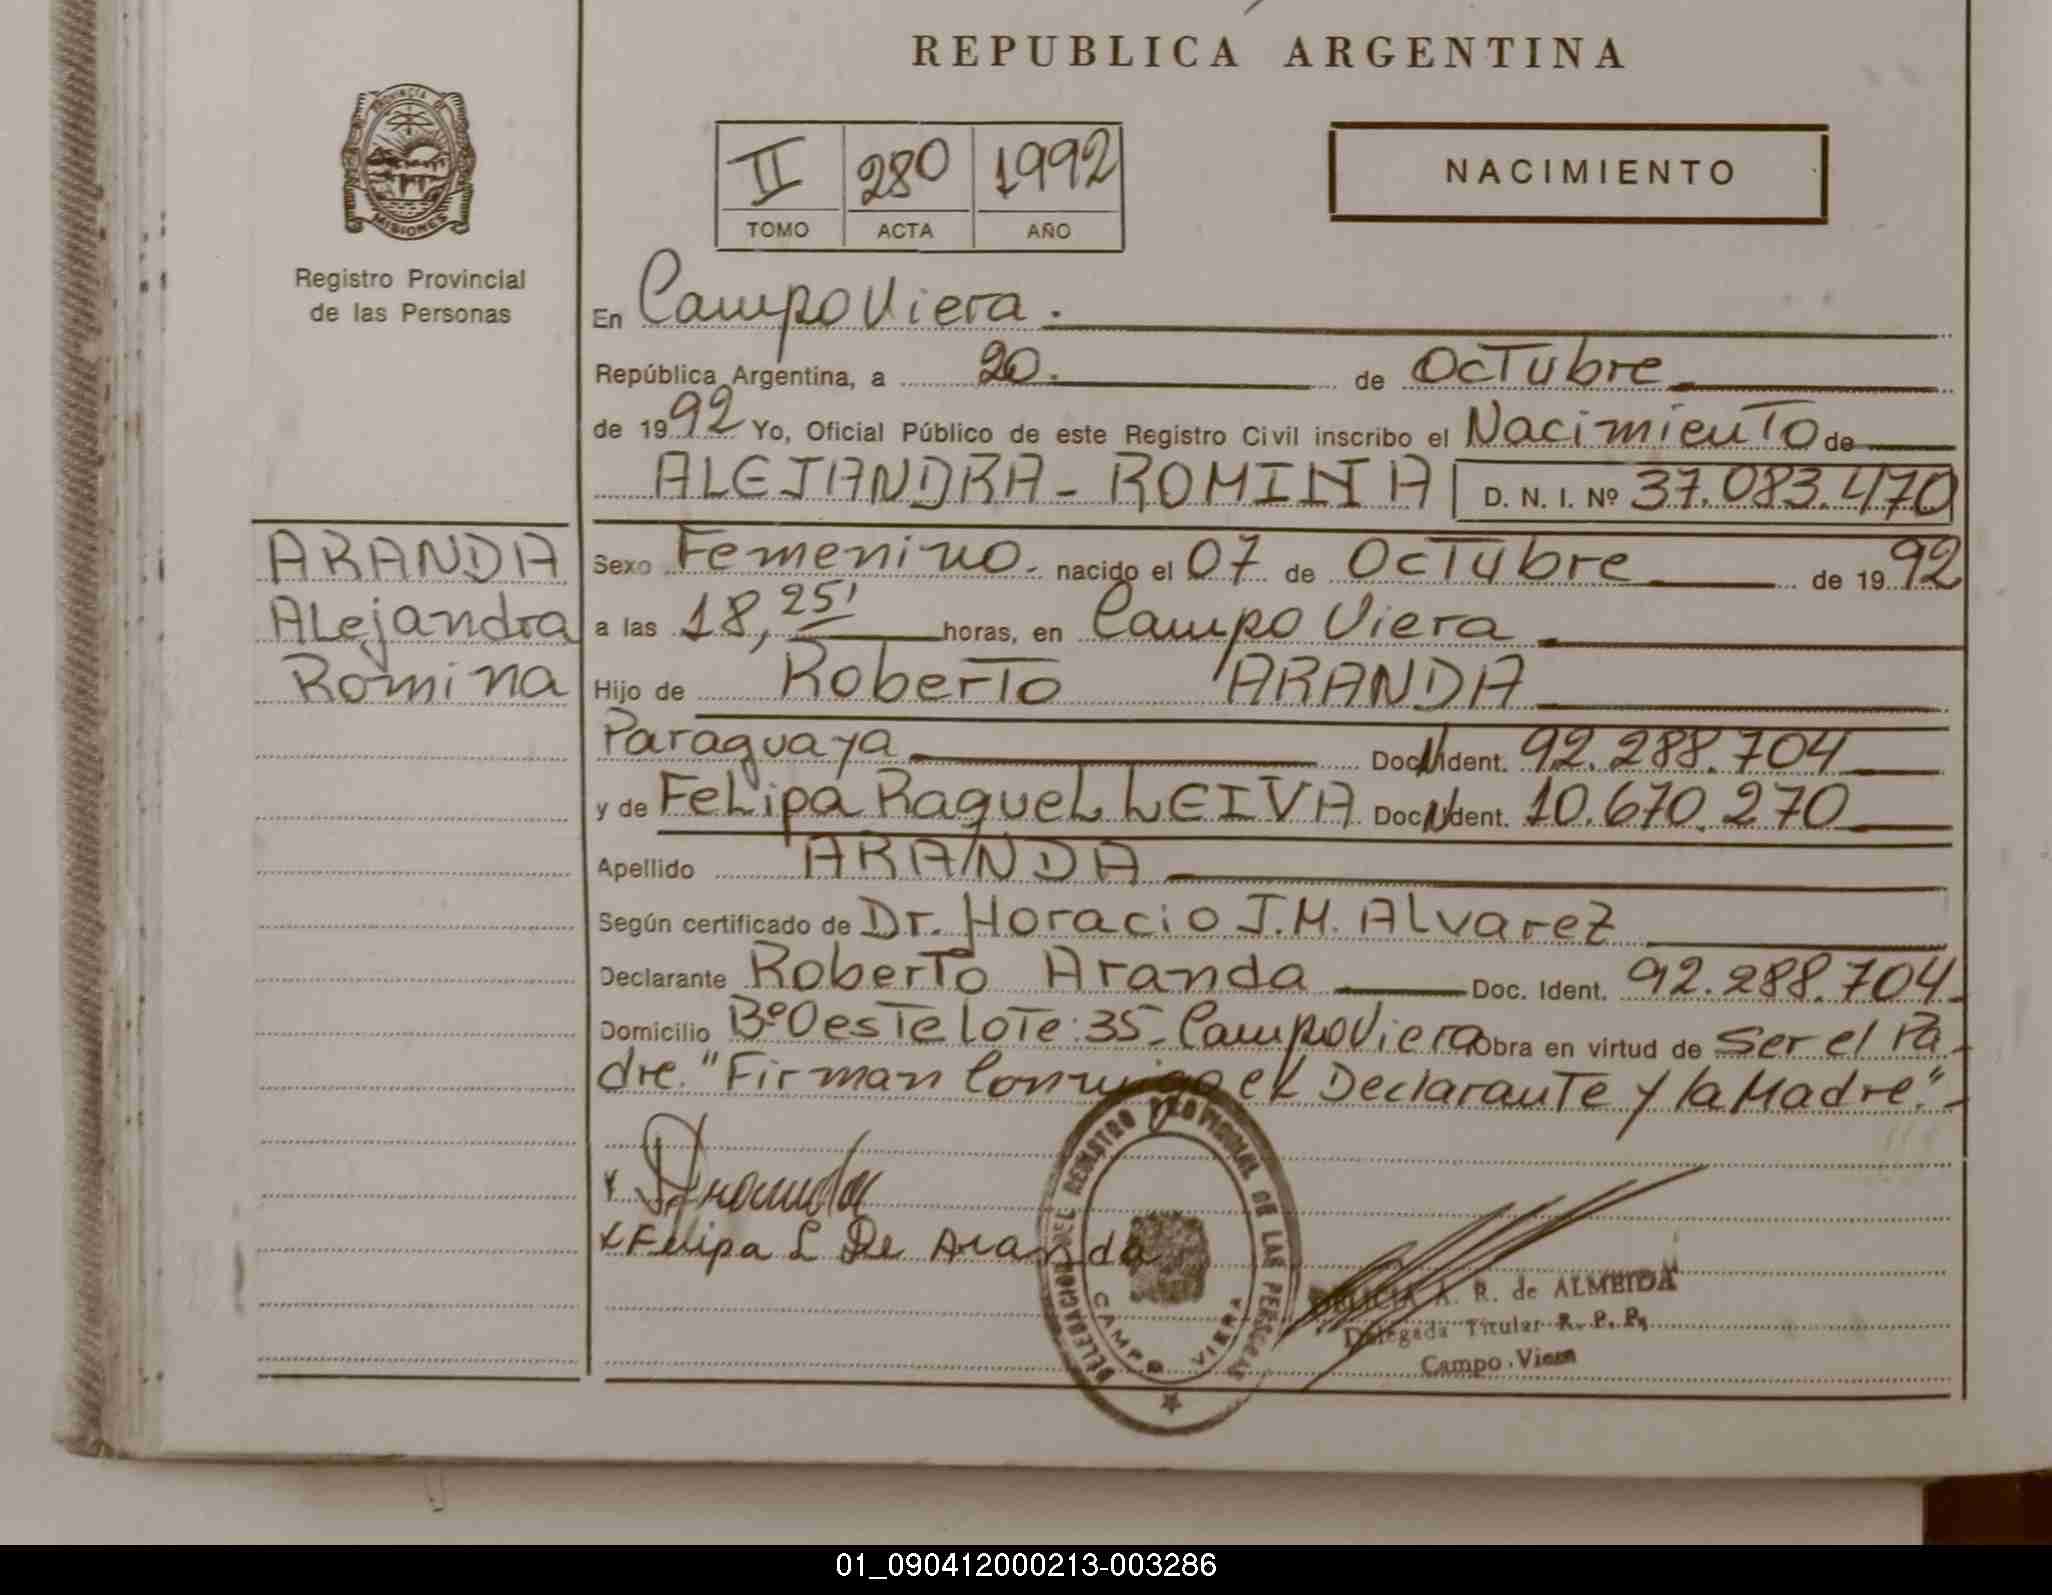 REPUBLICA ARGENTINA
PROVINCIA DE
MISIONES
Registro Provincial
de las Personas
II 280 1992
TOMO ACTA AÑO
NACIMIENTO
En Campo Viera.
República Argentina, a 20. de Octubre
de 1992 Yo, Oficial Público de este Registro Civil inscribo el Nacimiento de
ALEJANDRA - ROMINA D. N. I. Nº 37.083.470
ARANDA
Alejandra
Romina
Sexo Femenino. nacido el 07 de Octubre de 1992
a las 18, 25' horas, en Campo Viera
Hijo de Roberto ARANDA
Paraguaya Doc. Ident. 92.288.704
y de Felipa Raquel LEIVA Doc. Ident. 10.670.270
Apellido ARANDA
Según certificado de Dr. Horacio J.M. Alvarez
Declarante Roberto Aranda Doc. Ident. 92.288.704
Domicilio Bº Oeste lote: 35 - Campo Viera Obra en virtud de Ser el Pa-
dre. "Firman Conmigo el Declarante y la Madre." -
x Aranda
x Felipa L De Aranda
DELEGACION DEL REGISTRO PROVINCIAL DE LAS PERSONAS
CAMPO VIERA
DELICIA A. R. de ALMEIDA
Delegada Titular R. P. P.
Campo Viera
01_090412000213-003286